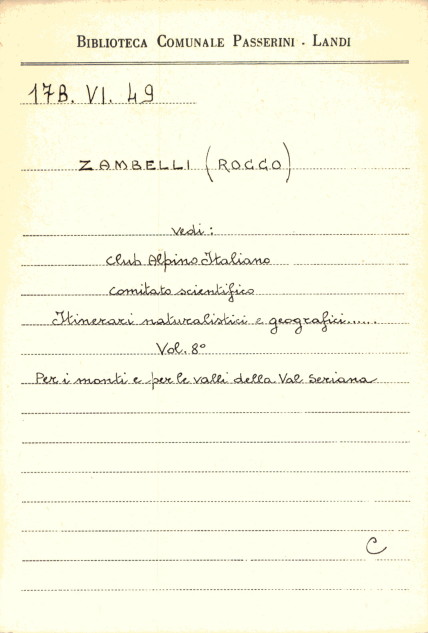 BIBLIOTECA COMUNALE PASSERINI - LANDI
17B. VI. 49
ZAMBELLI (ROCCO)
vedi:
Club Alpino Italiano
Comitato scientifico
Itinerari naturalistici e geografici......
Vol. 8°
Per i monti e per le valli della Val Seriana
C